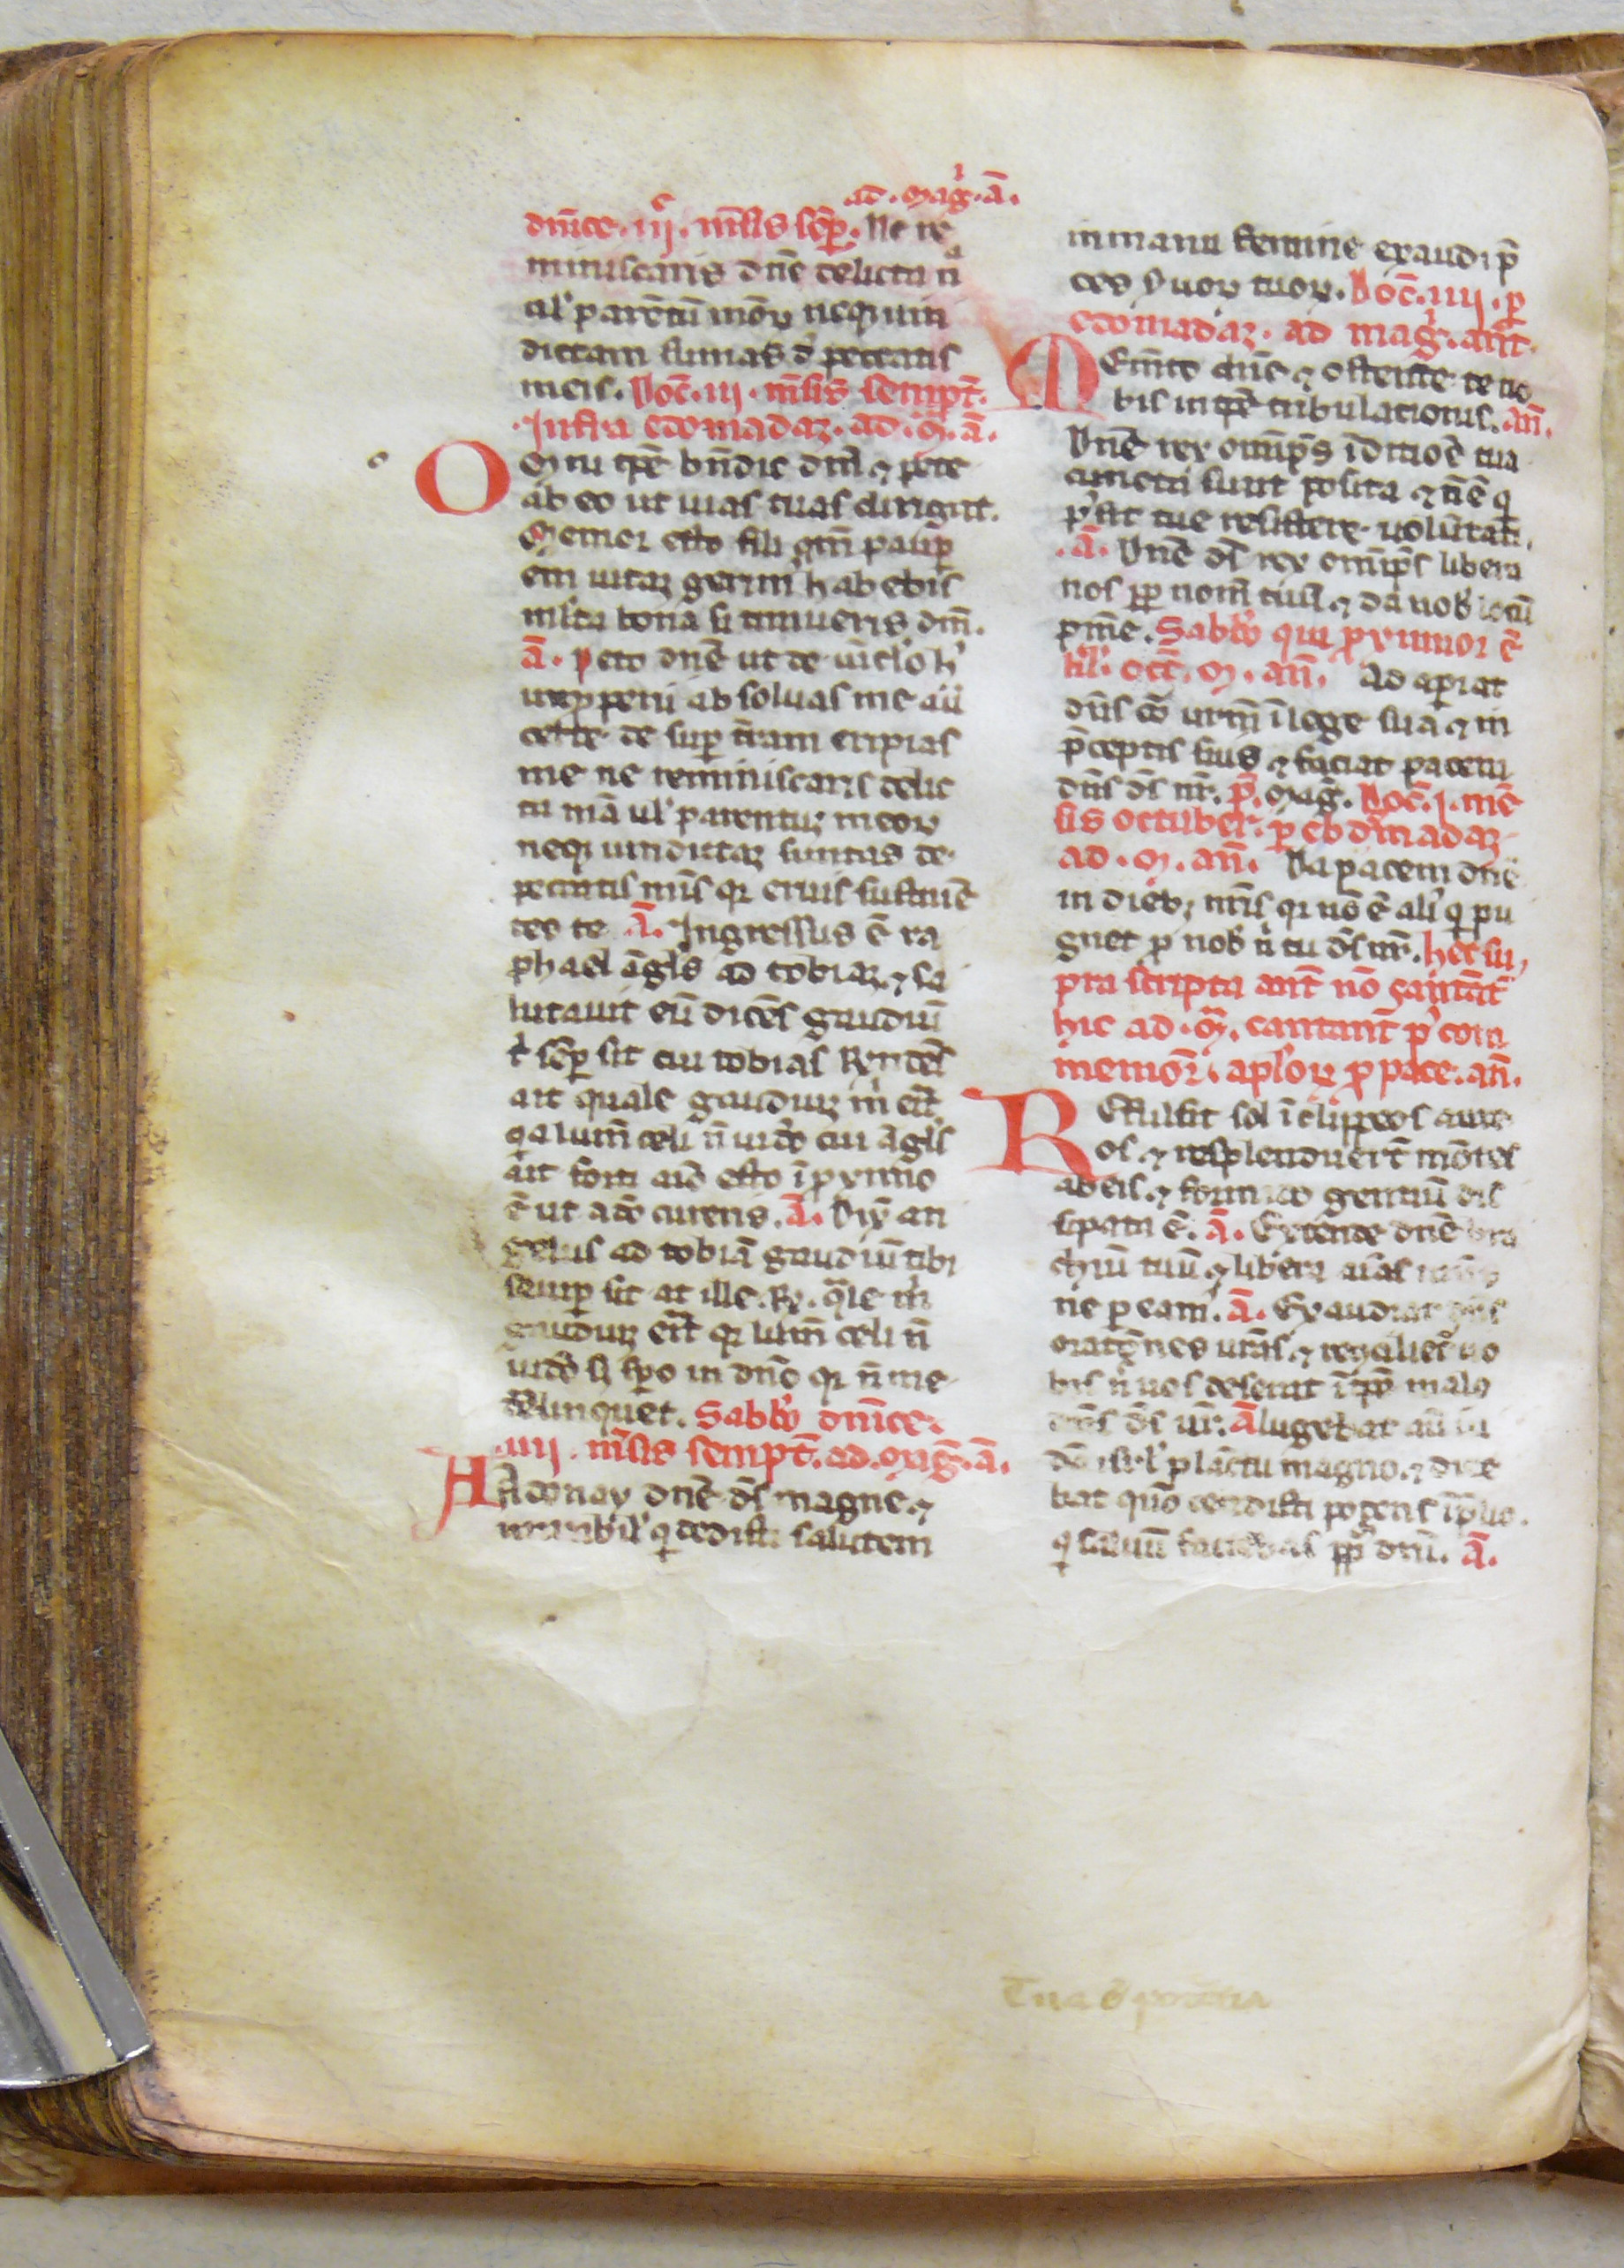 ad. mag̅. a̅.
dn̅ice. iij. m̅sis se̅p. Ne re
miniscaris dn̅e delicta n̅
ul' parentu̅ meoꝝ neqꝫ uin
dictam sumas d' peccatis
meis. Doc̅. iij. m̅sis sempt̅.
Infra edomadaꝫ. ad. m̅. a̅.
Om̅i tp̅e bn̅dic dm̅ ⁊ pete
ab eo ut uias tuas dirigat.
Memor esto fili qm̅ paup
em uitaꝫ gerim' habebis
ml̅ta bona si timueris dm̅.
a̅. peto dn̅e ut de ui̅cl'o h'
inpperii absoluas me au̅
certe de sup t̅ram eripias
me ne reminiscaris delic
ta m̅a ul' parentuꝫ meoꝝ
neqꝫ uindictaꝫ sumas de
peccatis m̅is qꝛ eruis sustine̅
tes te a̅. Ingressus e̅ ra
phael a̅gl's ad tobiaꝫ ⁊ sa
lutauit eu̅ dice̅s gaudiu̅
t' se̅p sit cui tobias ℟nde̅s
ait quale gaudiuꝫ m' erit
qa lum̅ celi n̅ uideo cui a̅gl's
ait forti aīo esto i̅ pximo
e̅ ut a deo cureris. a̅. Dix̅ an
gelus ad tobia̅ gaudiu̅ tibi
semp sit at ille. ℟. q̅le m'
gaudiuꝫ erit qꝛ lum̅ celi n̅
uideo si spo in dn̅o qꝛ n̅ me
delinquet. Sabb'o dn̅ice
.iiij. m̅sis sempt̅. ad. mag̅. a̅.
Adonay dn̅e ds̅ magne ⁊
mirabil' q dedisti salutem
in manu femine exaudi p̅
ces s̓uoꝝ tuoꝝ. Doc̅. iiij. p
edomadaꝫ. ad mag̅. ant̅.
Mem̅to dn̅e ⁊ ostende te no
bis in tp̅e tribulationis. an̅.
Dn̅e rex omip̅s i̅ ditio̅e tua
cuncta sunt posita ⁊ n̅ e̅ q
p̓sit tue resistere uolu̅tati.
.a̅. Dn̅e ds̅ rex omip̅s libera
nos pp nom̅ tuu̅ ⁊ da nob' locu̅
pn̅ie. Sabb'o qui pximior e̅
kl'. oct̅. m. an̅. Ad apiat
dn̅s cor urm̅ i̅ lege sua ⁊ in
p̅ceptis suis ⁊ faciat pacem
dn̅s ds̅ nr̅. p̅. mag̅. Doc̅. j. me̅
sis octuber. p ebdomadaꝫ
ad. m. an̅. Da pacem dn̅e
in diebꝫ nr̅is qꝛ no̅ e̅ ali' q pu
gnet p nob' n' tu ds̅ nr̅. hec su
pra scripta ant̅ no̅ ca̅tant̅
hic ad. m̅. cantant̅ p' com
memor̅. ap'loꝝ p pace. an̅.
Refulsit sol i̅ clippeos aure
os ⁊ resplenduert̅ mo̅tes
ab eis ⁊ fortitudo gentiu̅ dis
sipata e̅. a̅. Extende dn̅e bra
chiu̅ tuu̅ ⁊ libera ai̅as
ne peam'. a̅. Exaudiat dn̅s
oratio̅nes ur̅as ⁊ reco̅cilietʳ uo
bis n' uos deserat i̅ tp̅e malo
dn̅s ds̅ ur̅. a̅ lugebat au̅ iu
da̅ isrl' pla̅ctu magno ⁊ dice
bat quo̅ cecidisti pote̅s i̅ p̅lio
q saluu̅ faciebas pp̅l'm dn̅i. a̅.
Tua e̅ pote̅tia